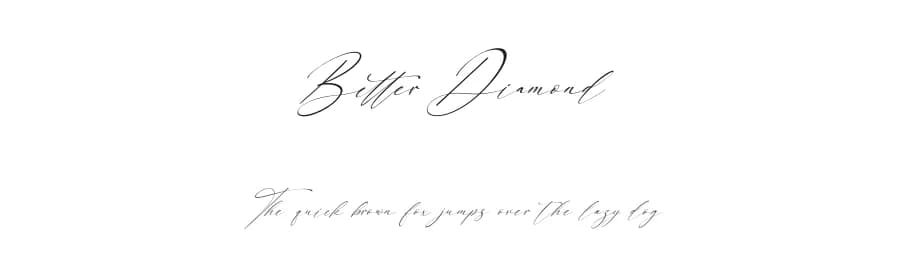 Bitter Diamond
The quick brown fox jumps over the lazy dog